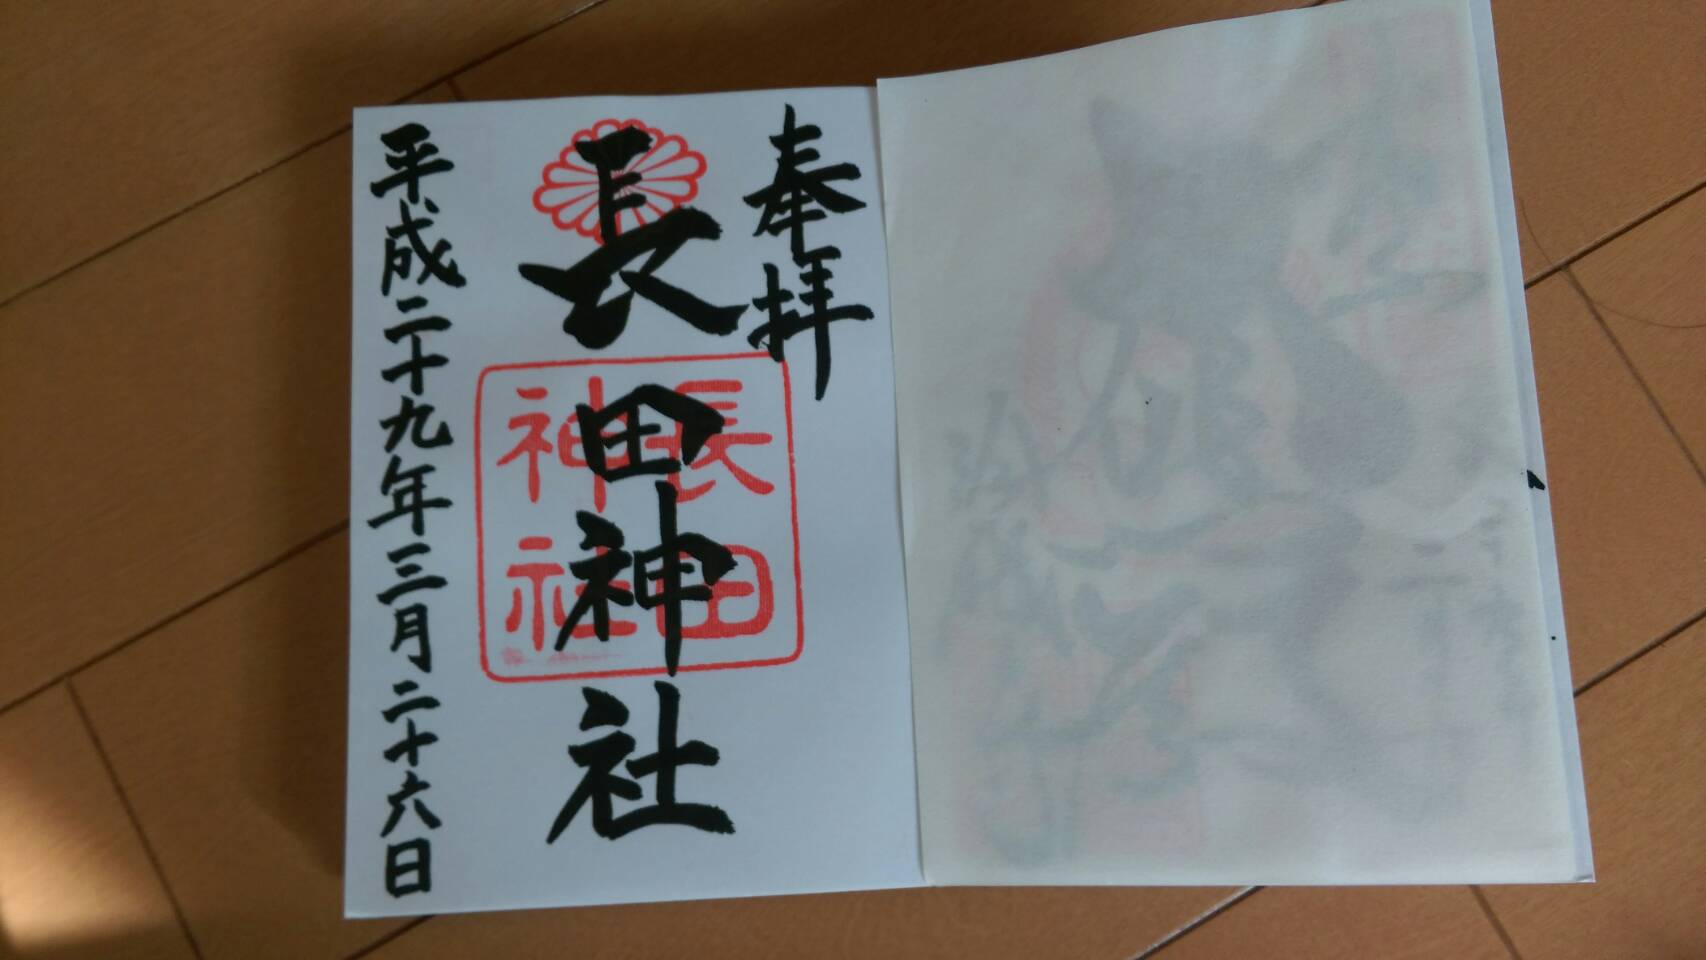 奉拝
長田神社
長田
神社
平成二十九年三月二十六日